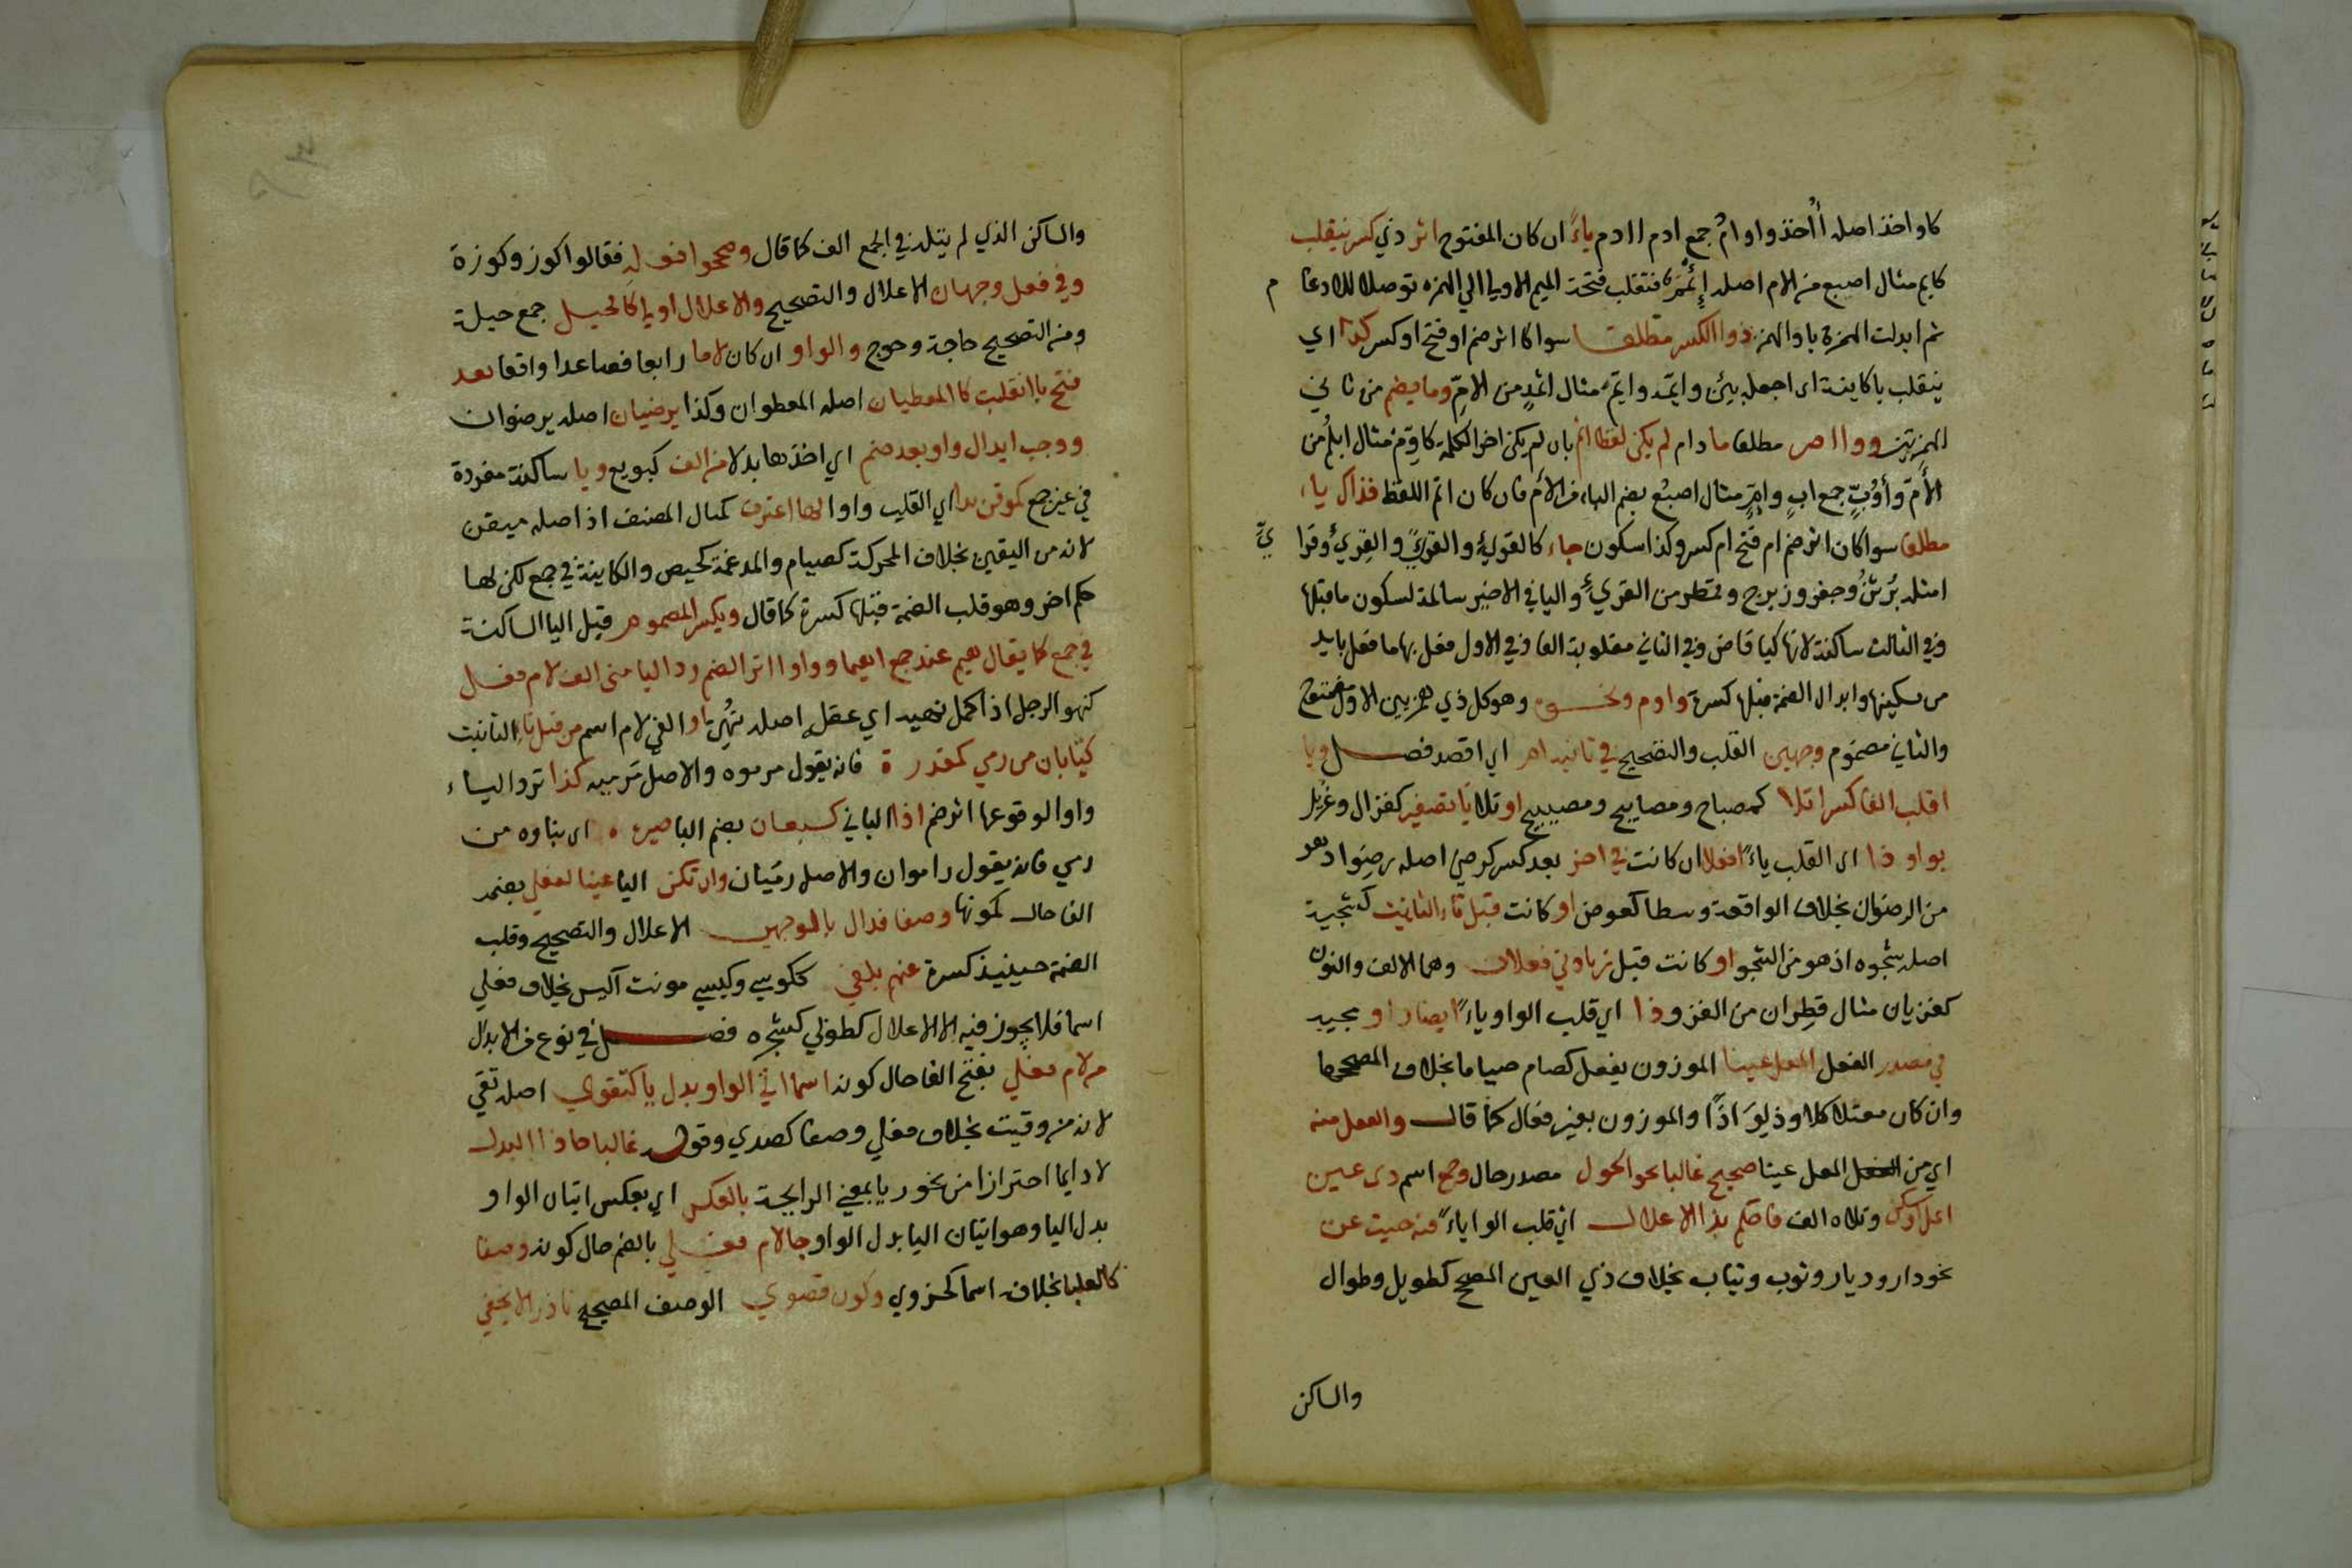 كاواخذ اصله أأخذ واو ام جمع ادم اادم ياءً ان كان المفتوح اثر ذي كسر ينقلب
كايم مثال اصبع من الام اصله إئمم فتقلب فتحة الميم الاولي الي الهمزه توصلا للادغام
ثم ابدلت الهمزة يا والهمز ذو الكسر مطلقا سوا كا اثر ضم او فتح او كسر كذا اي
ينقلب ياكاينة اي اجعله بيئن وايمّه وايمّ مثال اثمدٍ من الامّ وما يضم من ثاني
الهمزتين وواا صر مطلقا مادام لم يكن لفظا اتم بان لم يكن اخر الكلمة كاوم مثال ابلُم من
الأمّ وأوُبّ جمع ابٍ واومٍّ مثال اصبُع بضم الباء من الأم فان كان اتم اللفظ فذاك ياء
مطلقا سوا كان اثر ضم ام فتح ام كسر وكذا سكون جاء كالقرئي والقرئي والقرئي وقرا يّ
امثله بُرثن وجعفر وزبرج وقمطر من القرئ واليا في الاخير سالمة لسكون ما قبلها
وفي الثالث ساكنة لانها كيا قاض وفي الثاني مقلوبة الفا وفي الاول فعل بها ما فعل بايد
من تسكينها وابدال الضمة قبلها كسرة واوم ونحوه وهو كل ذي همزيين الاول مفتوح
والثاني مضموم وجهين القلب والتصحيح في ثانيه ام اي اقصد فصل ويا
اقلب الفا كسرا تلا كمصباح ومصابيح ومصيبيح او تلا يا تصغير كغزال وغزيل
بواو ذا اي القلب ياءً افعلا ان كانت في اخر بعد كسر كرضي اصله رضوا دهو
من الرضوان بخلاف الواقعة وسطا كعوض او كانت قبل تاء التانيث كشجية
اصله شجوه اذ هو من الشجو او كانت قبل زيادتي فعلان وهما الالف والنون
كغزيان مثال قطران من الغزو وذا اي قلب الواو ياءً ايضا راو مجيه
في مصدر الفعل المعل عينا الموزون بفعل كصام صياما بخلاف المصححها
وان كان معتلا كلاوذ ليوَاذًا والموزون بغير فعال كما قال والفعل منه
اي من المعل عينا صحيح غالبا نحو الحول مصدر حال وجمع اسم ذي عين
اعل او سكن وتلاه الف فاحكم بذا الاعلال اي قلب الواو ياءً فيه حيث عن
نحو دار وديار وثوب وثياب بخلاف ذي العين المصحح كطويل وطوال
والساكن
والساكن الذي لم يتله في الجمع الف كما قال وصححوا فعله فقالوا كوز وكوزة
وفي فعل وجهان الاعلال والتصحيح والاعلال اولي كالحيل جمع حيلة
ومن التصحيح حاجة وحوج والواو ان كان لاما رابعا فصاعدا واقعا بعد
فتح يا انقلبت كا المعطيان اصله المعطوان وكذا يرضيان اصله يرضوان
ووجب ابدال واو بعد ضم اي اخذها بدلا من الف كبويع ويا ساكنة مفردة
في غير جمع كموقن بذا اي القلب واوا لها اعترف كمثال المصنف اذ اصله ميقن
لانه من اليقين بخلاف المحركة كصيام والمدغمة كحيض والكاينة في جمع لكن لها
حكم اخر وهو قلب الضمة قبلها كسرة كما قال ويكسر المضموم قبل اليا الساكنة
في جمع كما يقال هيم عند جمع اهيما وواوا اثر الضم رد اليا متي الف لام فعل
كنهو الرجل اذا كمل نهيه اي عقله اصله نهُي او الفي لام اسم من قبل تاء التانيث
كتا بان من رمي كمقدرة فانه يقول مرموه والاصل مرميه كذا ترد الياء
واوا لوقوعها اثر ضم اذا الباني كسبعان بضم البا صيره اي بناوه من
رمي فانه يقول راموان والاصل رميان وان تكن اليا عينا لفعلي بضم
الفا حال كونها وصفا فذال بالوجهين الاعلال والتصحيح وقلب
الضمة حينيذ كسرة عنهم يلفي ككوسي وكيسي مونث اكيس بخلاف فعلي
اسما فلا يجوز فيه الا الاعلال كطوبي كشجره فصل في نوع من الابدال
من لام فعلي بفتح الفا حال كونه اسما اتي الواو بدل يا كتقوي اصله تقي
لانه من وقيت بخلاف فعلي وصفا كصدي وقوله غالبا جا ذا البدل
لا دايما احترازا من نحو ريا بمعني الرايحة بالعكس اي بعكس اتيان الواو
بدل اليا وهو اتيان اليا بدل الواو جا لام فعلي بالضم حال كونه وصفا
كالعليا بخلاف اسما كحزوي وكون قصوي الوصف المصحح نادر الا يخفي